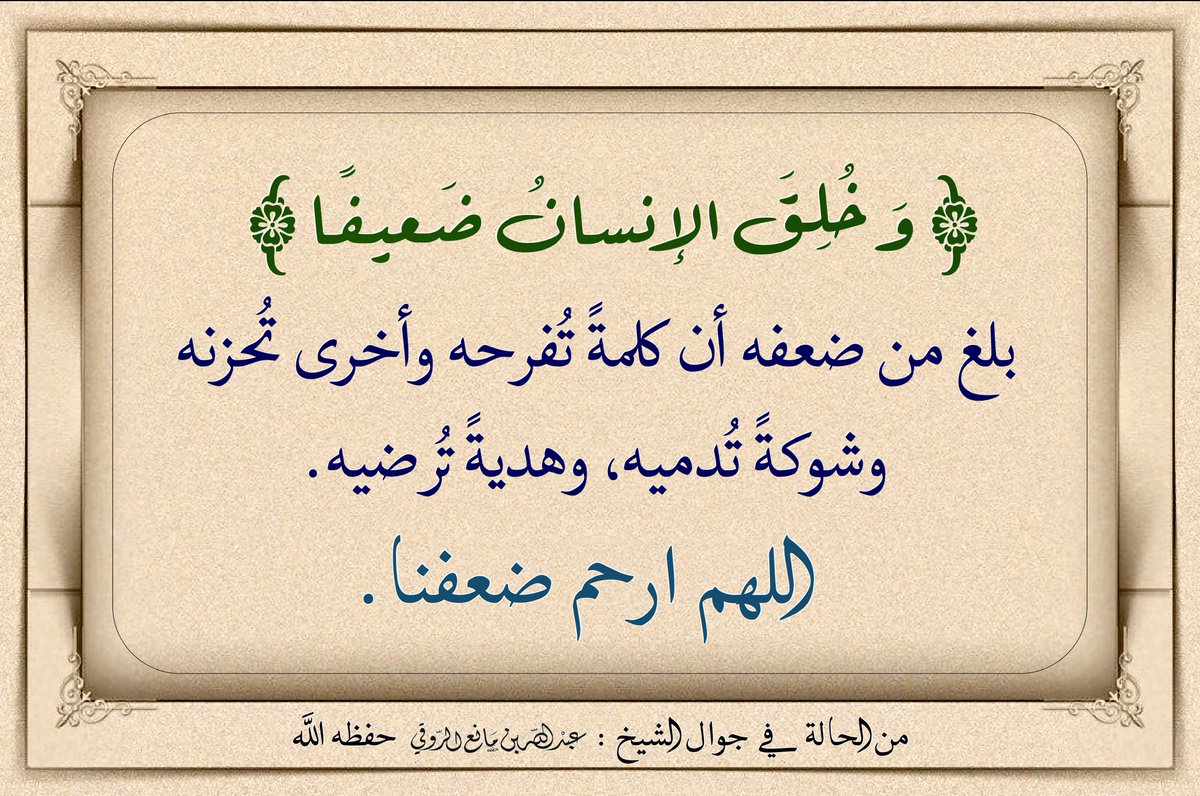 ﴿ وَ خُلِقَ الإنسانُ ضَعيفًا ﴾
بلغ من ضعفه أن كلمةً تُفرحه وأخرى تُحزنه
وشوكةً تُدميه، وهديةً تُرضيه.
اللهم ارحم ضعفنا.
من الحالة في جوال الشيخ : عبدالله بن مانع الروقي حفظه اللَّه